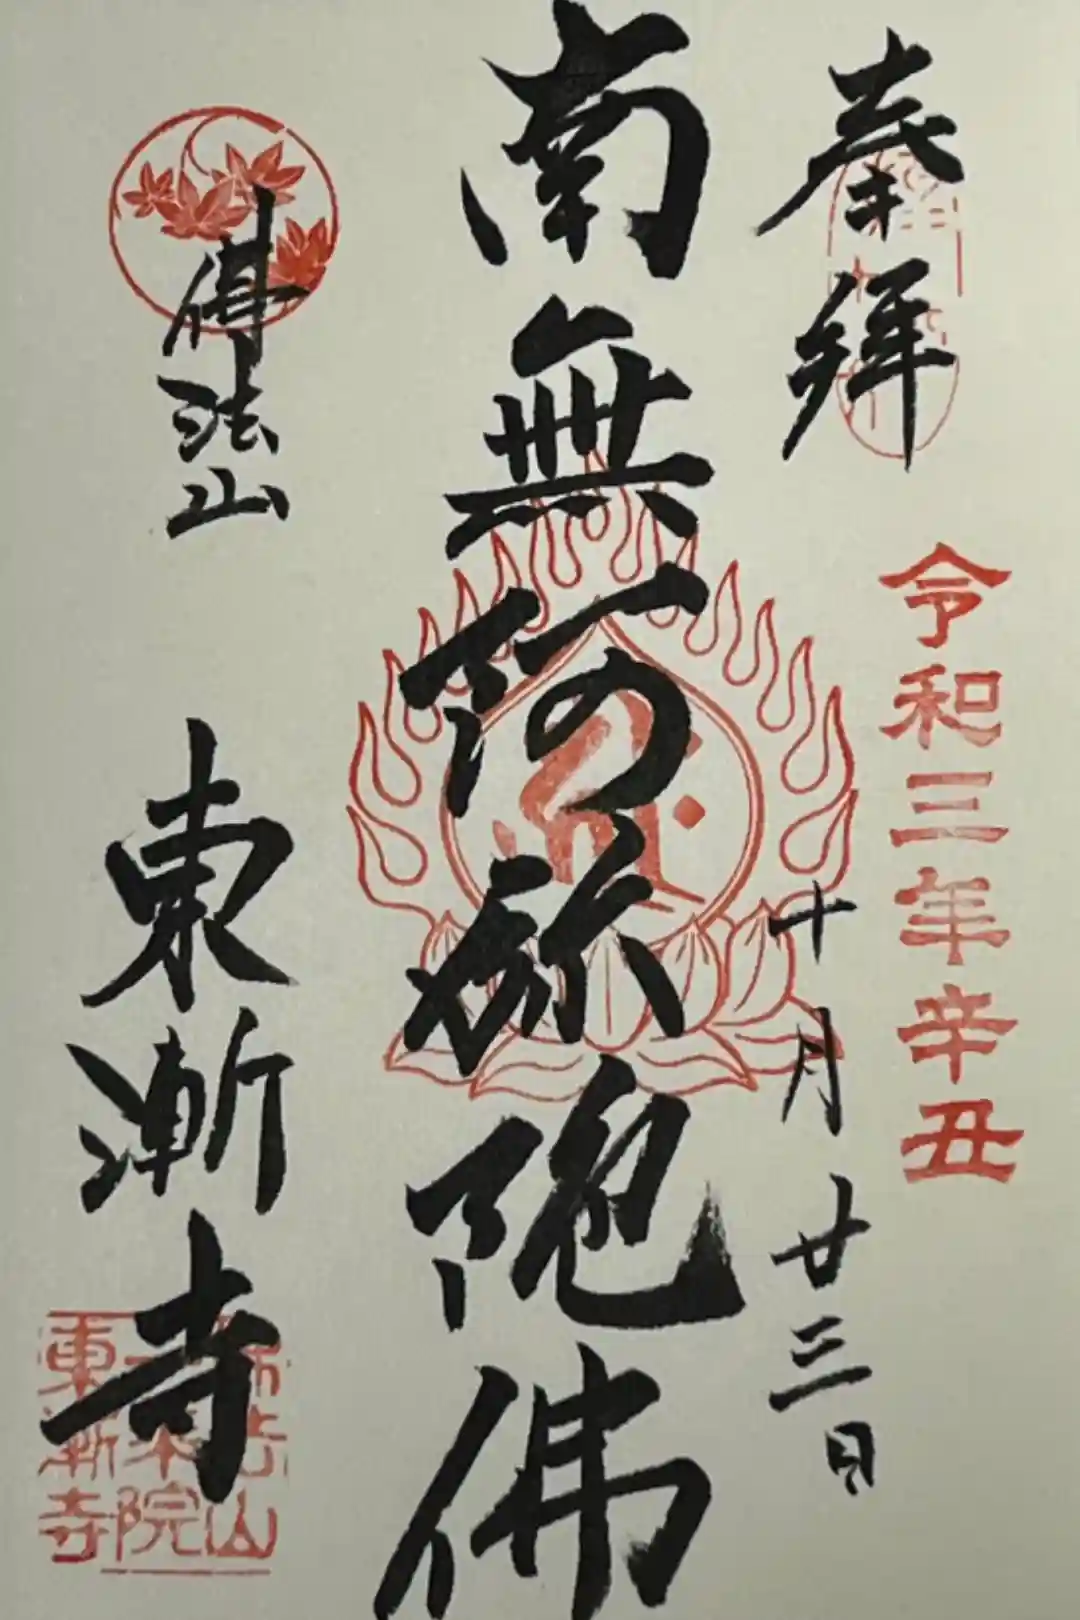 奉拝
令和三年辛丑
十月廿三日
南無阿弥陀佛
佛法山
東漸寺
佛法山
一乗院
東漸寺